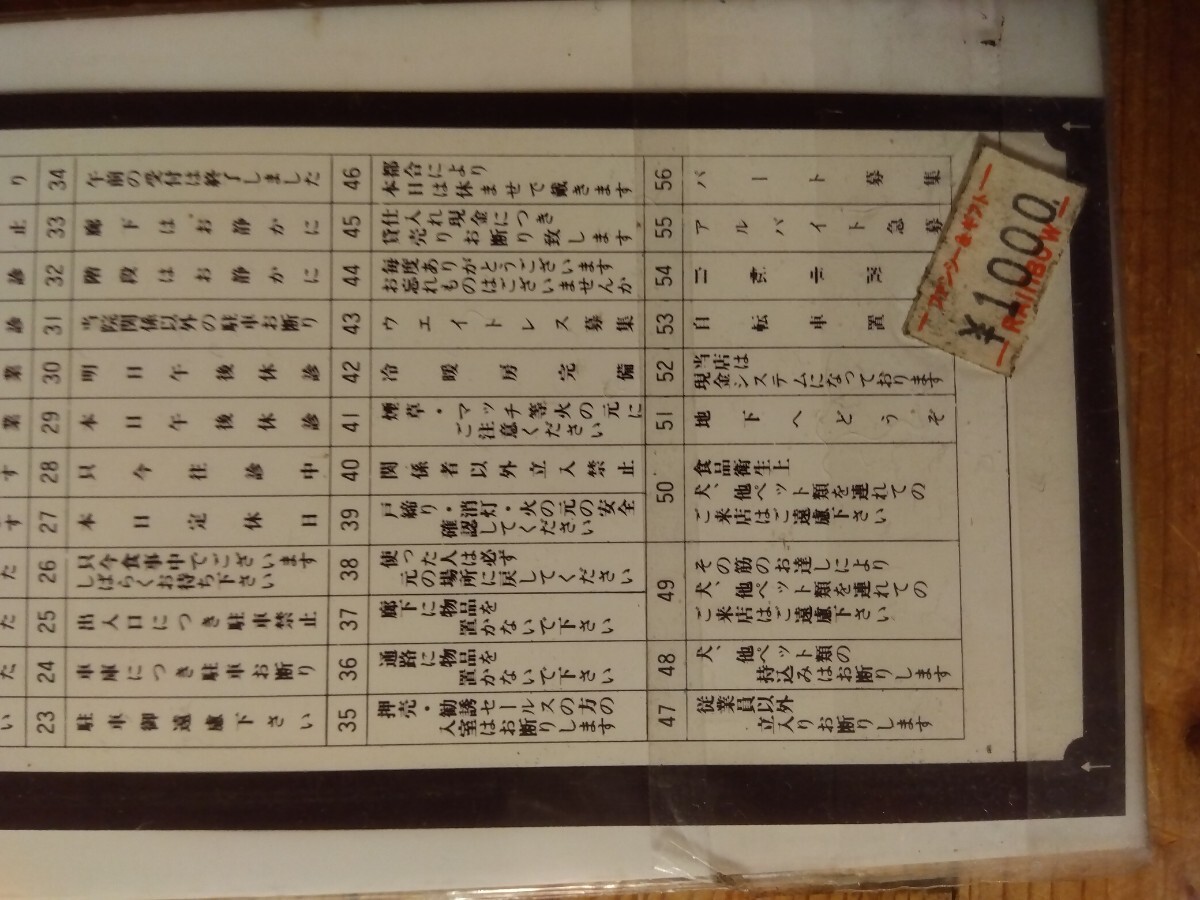 り
止
診
診
業
業
す
す
た
た
た
い
34
午前の受付は終了しました
33
廊下はお静かに
32
階段はお静かに
31
当院関係以外の駐車お断り
30
明日午後休診
29
本日午後休診
28
只今往診中
27
本日定休日
26
只今食事中でございます
しばらくお待ち下さい
25
出入口につき駐車禁止
24
車庫につき駐車お断り
23
駐車御遠慮下さい
46
都合により
本日は休ませて戴きます
45
仕入れ現金につき
貸売りお断り致します
44
毎度ありがとうございます
お忘れものはございませんか
43
ウエイトレス募集
42
冷暖房完備
41
煙草・マッチ等火の元に
ご注意ください
40
関係者以外立入禁止
39
戸締り・消灯・火の元の安全
確認してください
38
使った人は必ず
元の場所に戻してください
37
廊下に物品を
置かないで下さい
36
通路に物品を
置かないで下さい
35
押売・勧誘セールスの方の
入室はお断りします
56
パート募集
55
アルバイト急募
54
53
自転車置
52
当店は
現金システムになっております
51
地下へどうぞ
50
食品衛生上
犬、他ペット類を連れての
ご来店はご遠慮下さい
49
その筋のお達しにより
犬、他ペット類を連れての
ご来店はご遠慮下さい
48
犬、他ペット類の
持込みはお断りします
47
従業員以外
立入りお断りします
ファンシー&ギフト
¥1000
RAINBOW